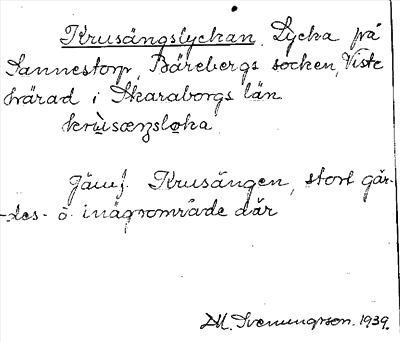 Krusängslyckan. Lycka på
Sannestorp, Bärebergs socken, Viste
härad i Skaraborgs län
krùsæŋsløka
Jämf. Krusängen, stort går-
-des- o. inägoområde där
M. Svenungsson. 1939.